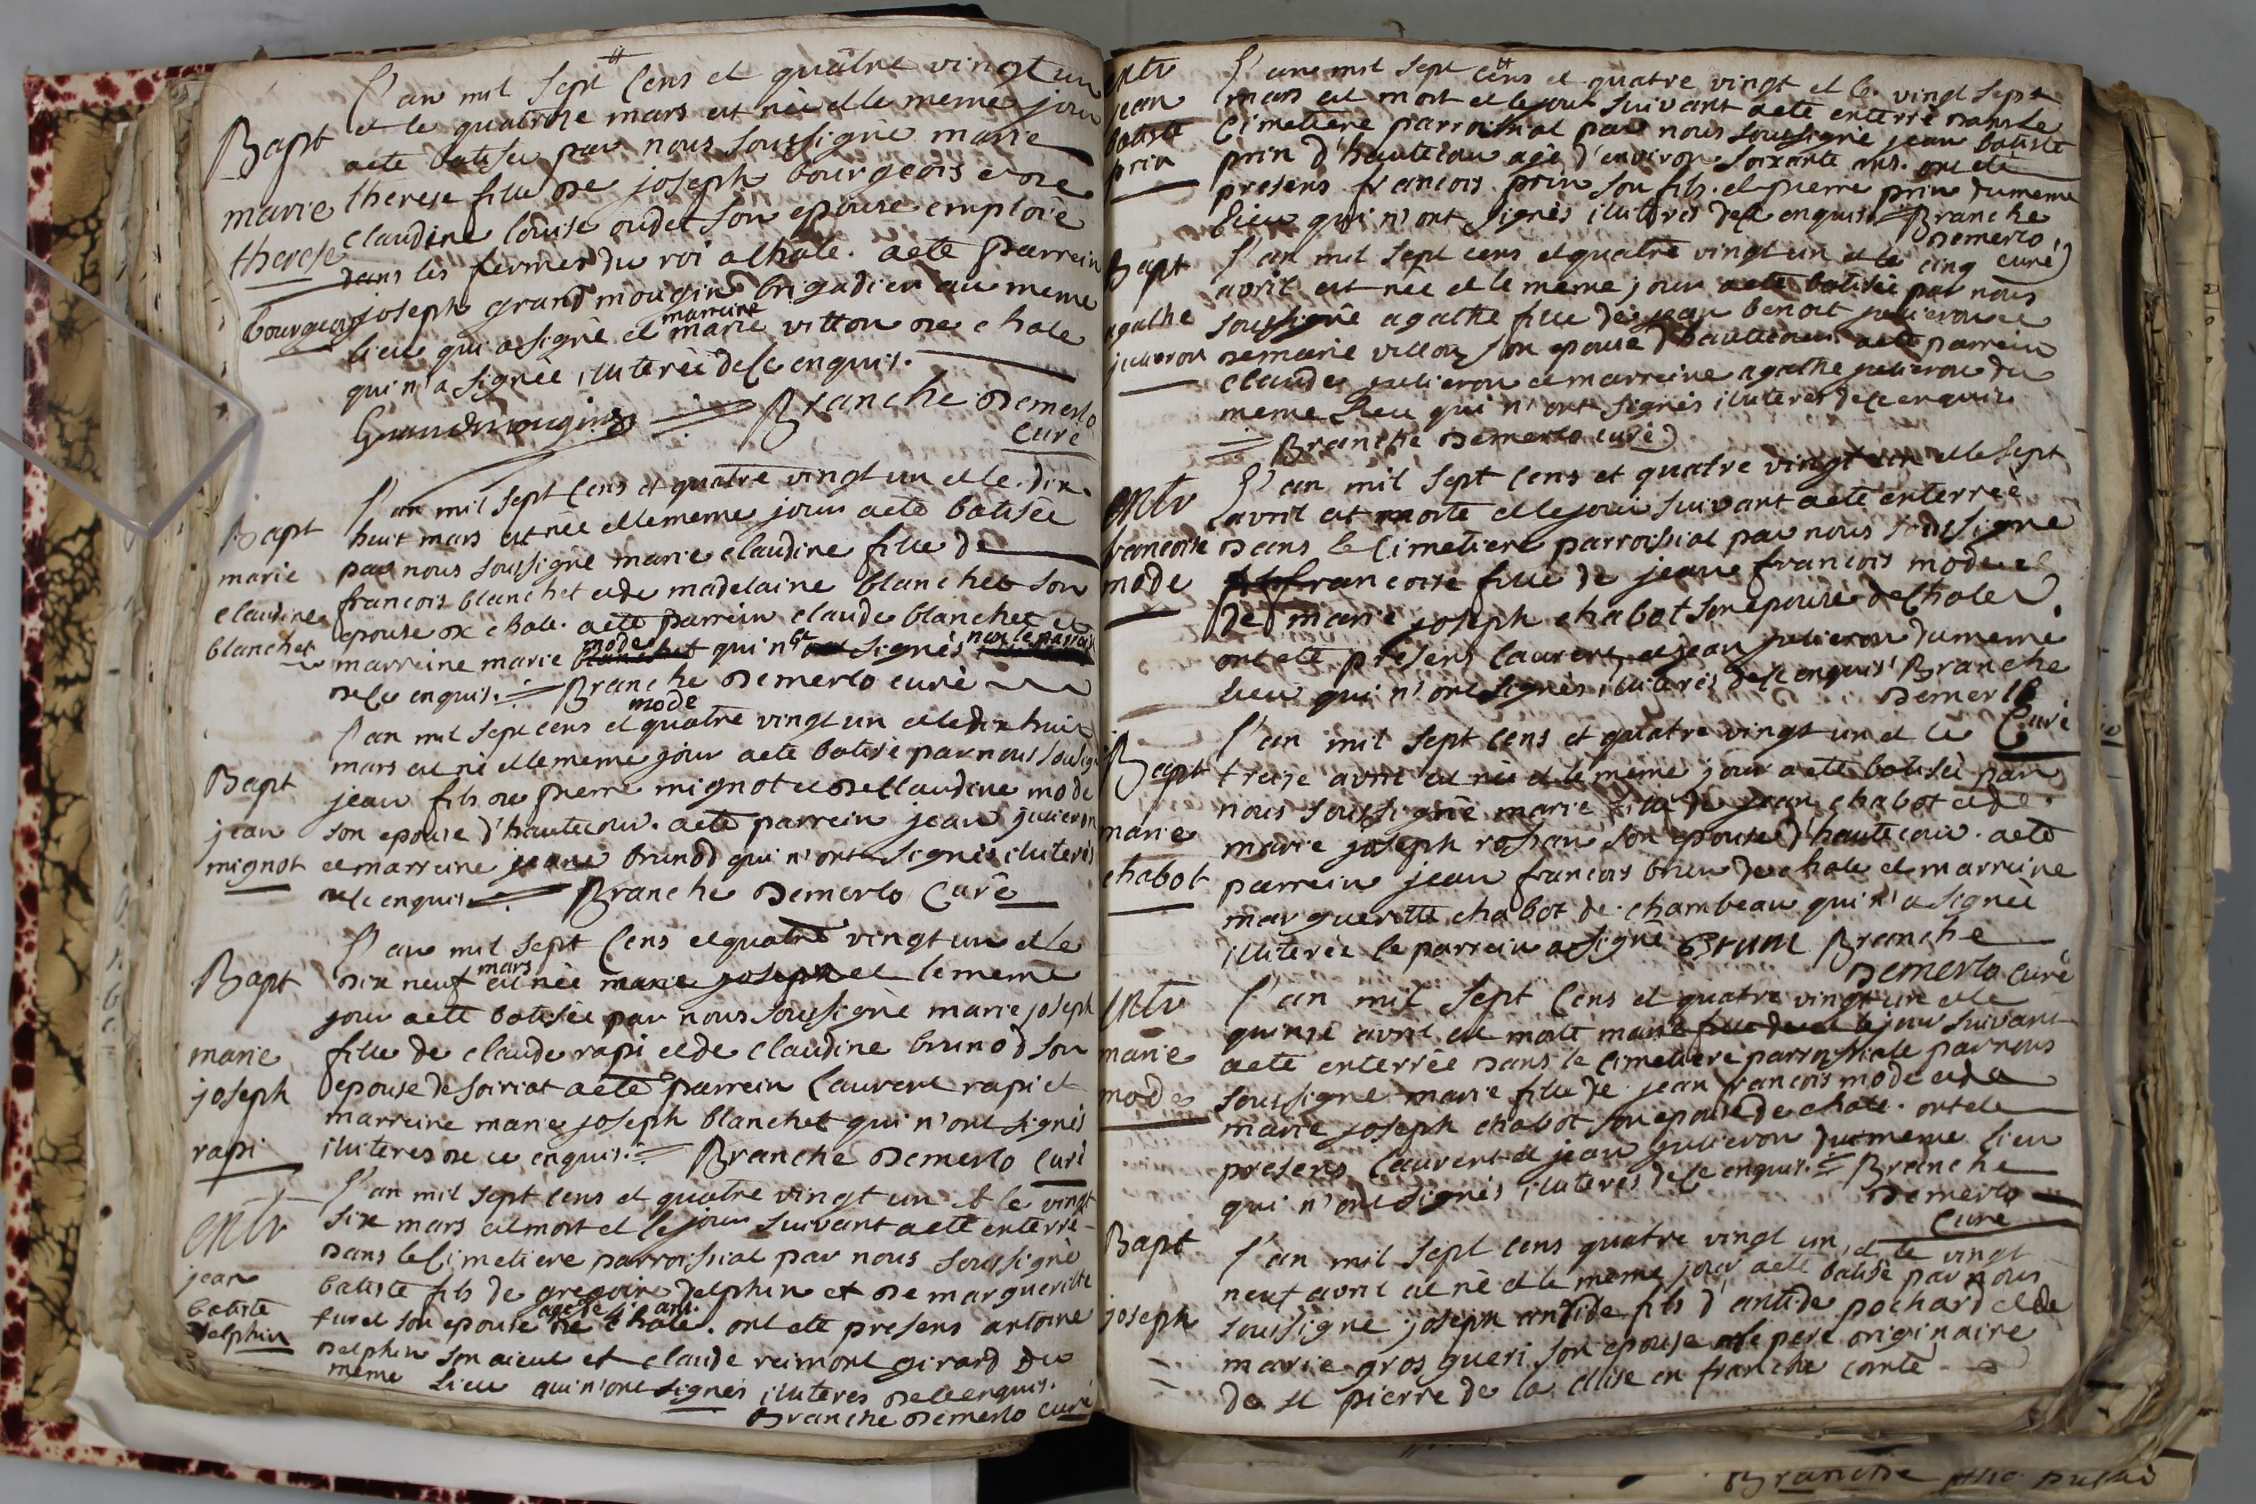 L'an mil sept cens et quatre vingt un
et le quatorse mars est née et le meme jour
Bapt
aete batisée par nous soussigné marie
marie
therese fille de joseph bourgeois et de
therese
claudine louise oudet son epouse emploïé
dans les fermes du roi a chale. aete parrein
bourgeois
joseph grandmougin brigadier au meme
lieu qui a signé et marreine marie vitton de chale
qui n'a signée illiterée de ce enquis.
Grandmougin Branche Demerlo
curé
L'an mil sept cens et quatre vingt un et le dix-
Bapt
huit mars est née et le meme jour aete batisée
marie
par nous soussigné marie claudine fille de
claudine
francois blanchet et de madelaine blanchet son
epouse de chale. aete parrein claude blanchet et
blanchet
marreine marie mode qui n'ont signés
de ce enquis. Branche Demerlo curé
mode
L'an mil sept cens et quatre vingt un et le dix huit
mars est né et le meme jour aete batisé par nous soussigné
Bapt
jean fils de pierre mignot et de claudine mode
jean
son epouse d'hautecour. aete parrein jean julieron
mignot
et marreine jeane brunod qui n'ont signés illiterés
de ce enquis Branche Demerlo Curé
L'an mil sept cens et quatre vingt un et le
Bapt
dix neuf mars est née marie joseph et le meme
jour aete batisée par nous soussigné marie joseph
marie
fille de claude rapi et de claudine brunod son
joseph
epouse de soiriat aete parrein laurent rapi et
marreine marie joseph blanchet qui n'ont signés
rapi
illiterés de ce enquis. Branche Demerlo curé
L'an mil sept cens et quatre vingt un et le vingt
entr
six mars est mort et le jour suivant aete enterré
dans le cimetiere parroissial par nous soussigné
jean
batiste fils de gregoire delphin et de margueritte
batiste
furet son epouse de chale. ont ete presens antoine
delphin
delphin son aieul et claude reimont girard du
meme lieu qui n'ont signés illiterés de ce enquis.
Branche Demerlo curé
entr
L'an mil sept cens et quatre vingt et le vingt sept
jean
mars est mort et le jour suivant aete enterré dans le
batiste
cimetiere parroissial par nous soussigné jean batiste
prin
prin d'hautecour agé d'environ soixante ans. ont eté
presens francois prin son fils et pierre prin du meme
lieu qui n'ont signés illiterés de ce enquis Branche
Demerlo
curé
Bapt
L'an mil sept cens et quatre vingt un et le cinq
avril est née et le meme jour aete batisée par nous
agathe
soussigné agathe fille de jean benoit julieron et
julieron
de marie villon son epouse d'hautecour. aete parrein
claude julieron et marreine agathe julieron du
meme lieu qui n'ont signés illiterés de ce enquis
Branche Demerlo curé
L'an mil sept cens et quatre vingt un et le sept
entr
avril est morte et le jour suivant aete enterrée
francoise
dans le cimetiere parroissial par nous soussigné
mode
francoise fille de jean francois mode et
de marie joseph chabot son epouse de chale.
ont eté presens laurent et jean julieron du meme
lieu qui n'ont signés illiterés de ce enquis Branche
Demerlo
Curé
L'an mil sept cens et quatre vingt un et le
Bapt
treize avril est née et le meme jour aete batisée par
nous soussigné marie fille de jean chabot et de
marie
marie joseph rossan son epouse d'hautecour. aete
chabot
parrein jean francois brun de chale et marreine
margueritte chabot de chambeau qui n'a signée
illiterée le parrein a signé Brun Branche
Demerlo curé
entr
L'an mil sept cens et quatre vingt un et le
quinse avril est morte marie fille de et le jour suivant
marie
aete enterrée dans le cimetiere parroissiale par nous
mode
soussigné marie fille de jean francois mode et de
marie joseph chabot son epouse de chale. ont ete
presens laurent et jean julieron du meme lieu
qui n'ont signés illiterés de ce enquis. Branche
Demerlo
Curé
Bapt
L'an mil sept cens quatre vingt un et le vingt
neuf avril est né et le meme jour aeté batisé par nous
joseph
soussigné joseph antide fils d'antide pochard et de
marie gros gueri son epouse le pere originaire
de st pierre de la cluse en franche comté
Branche